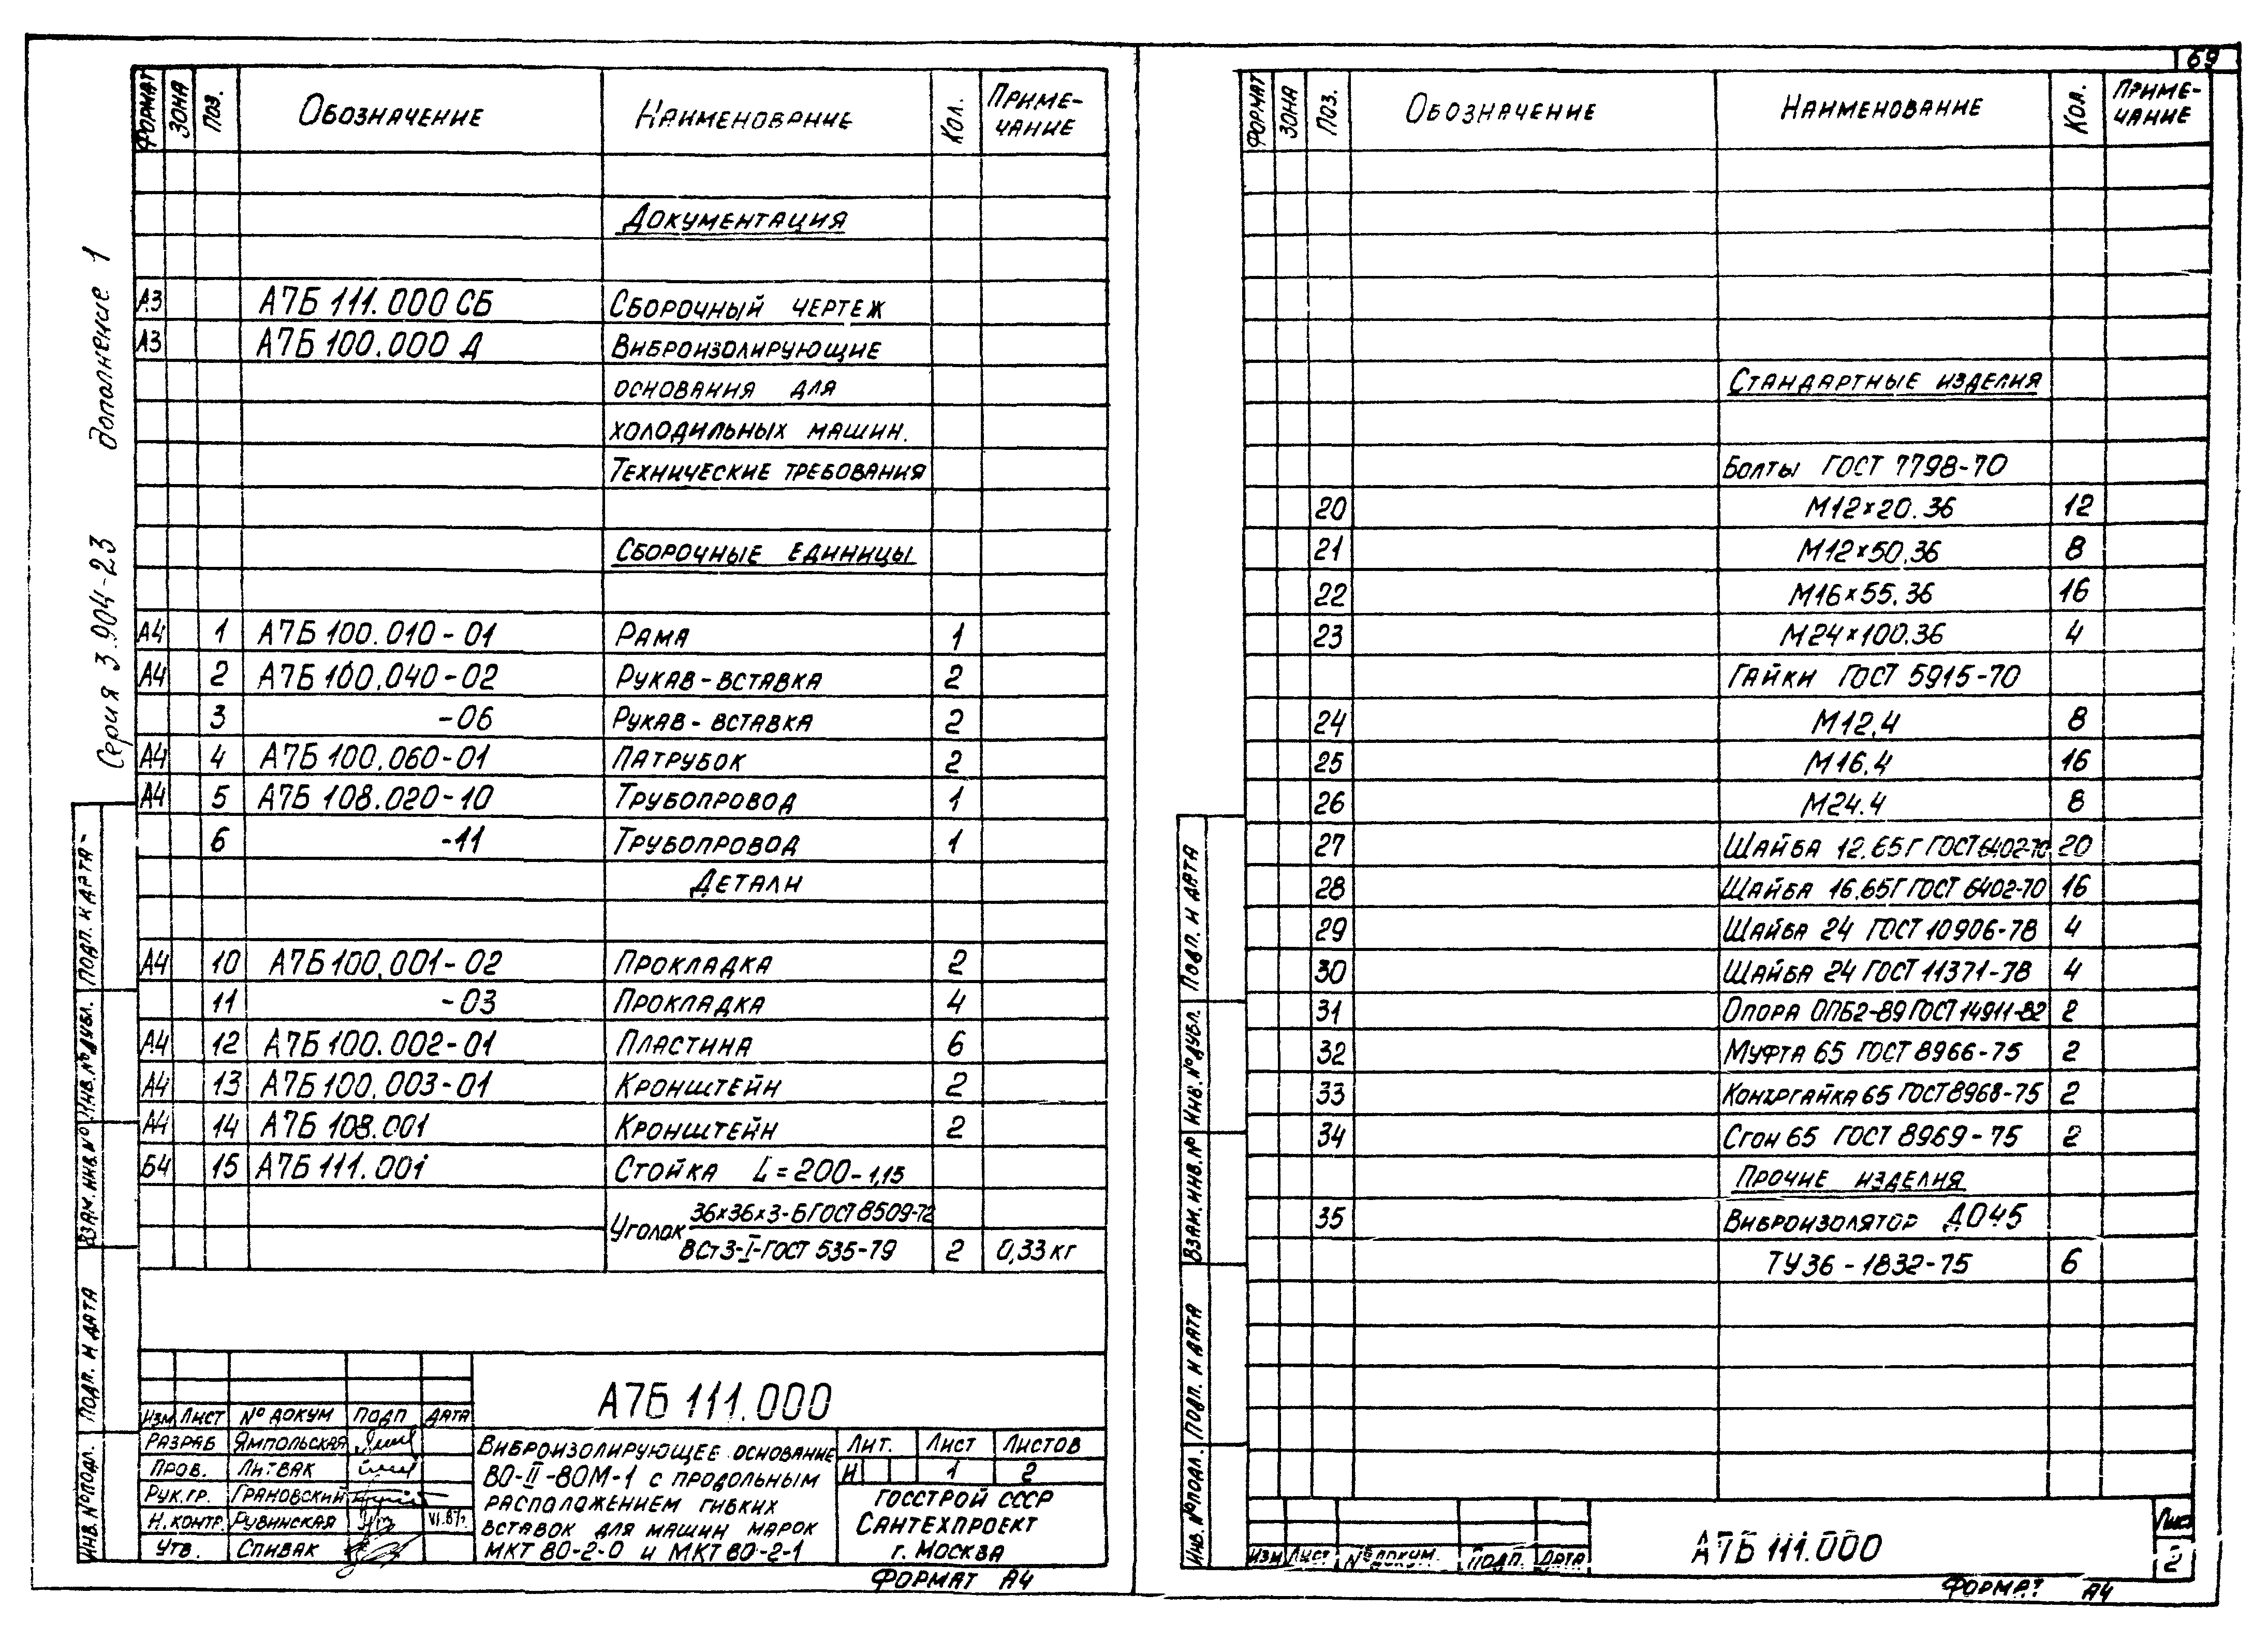 Серия 3.904-23 дополнение 1
ФОРМАТ ЗОНА ПОЗ. ОБОЗНАЧЕНИЕ НАИМЕНОВАНИЕ КОЛ. ПРИМЕ-
ЧАНИЕ
ДОКУМЕНТАЦИЯ
А3 А7Б 111.000 СБ СБОРОЧНЫЙ ЧЕРТЕЖ
А3 А7Б 100.000 Д ВИБРОИЗОЛИРУЮЩИЕ
ОСНОВАНИЯ ДЛЯ
ХОЛОДИЛЬНЫХ МАШИН.
ТЕХНИЧЕСКИЕ ТРЕБОВАНИЯ
СБОРОЧНЫЕ ЕДИНИЦЫ
А4 1 А7Б 100.010-01 РАМА 1
А4 2 А7Б 100.040-02 РУКАВ-ВСТАВКА 2
3 -06 РУКАВ-ВСТАВКА 2
А4 4 А7Б 100.060-01 ПАТРУБОК 2
А4 5 А7Б 108.020-10 ТРУБОПРОВОД 1
6 -11 ТРУБОПРОВОД 1
ДЕТАЛИ
А4 10 А7Б 100.001-02 ПРОКЛАДКА 2
11 -03 ПРОКЛАДКА 4
А4 12 А7Б 100.002-01 ПЛАСТИНА 6
А4 13 А7Б 100.003-01 КРОНШТЕЙН 2
А4 14 А7Б 108.001 КРОНШТЕЙН 2
Б4 15 А7Б 111.001 СТОЙКА L=200-1,15
36×36×3-Б ГОСТ 8509-72
УГОЛОК
ВСт3-I-ГОСТ 535-79 2 0,33 кг
ПОДП. И ДАТА
ИНВ. № ДУБЛ.
ВЗАМ. ИНВ. №
ПОДП. И ДАТА
ИНВ. № ПОДЛ.
А7Б 111.000
ИЗМ ЛИСТ № ДОКУМ ПОДП ДАТА
РАЗРАБ ЯМПОЛЬСКАЯ
ПРОВ. ЛИТВАК
РУК.ГР. ГРАНОВСКИЙ
Н.КОНТР. РУВИНСКАЯ VI.87г.
УТВ. СПИВАК
ВИБРОИЗОЛИРУЮЩЕЕ ОСНОВАНИЕ
ВО-II-80М-1 С ПРОДОЛЬНЫМ
РАСПОЛОЖЕНИЕМ ГИБКИХ
ВСТАВОК ДЛЯ МАШИН МАРОК
МКТ 80-2-0 И МКТ 80-2-1
ЛИТ. ЛИСТ ЛИСТОВ
И 1 2
ГОССТРОЙ СССР
САНТЕХПРОЕКТ
г. МОСКВА
ФОРМАТ А4
69
ФОРМАТ ЗОНА ПОЗ. ОБОЗНАЧЕНИЕ НАИМЕНОВАНИЕ КОЛ. ПРИМЕ-
ЧАНИЕ
СТАНДАРТНЫЕ ИЗДЕЛИЯ
БОЛТЫ ГОСТ 7798-70
20 М12×20.36 12
21 М12×50.36 8
22 М16×55.36 16
23 М24×100.36 4
ГАЙКИ ГОСТ 5915-70
24 М12.4 8
25 М16.4 16
26 М24.4 8
27 ШАЙБА 12.65Г ГОСТ 6402-70 20
28 ШАЙБА 16.65Г ГОСТ 6402-70 16
29 ШАЙБА 24 ГОСТ 10906-78 4
30 ШАЙБА 24 ГОСТ 11371-78 4
31 ОПОРА ОПБ2-89 ГОСТ 14911-82 2
32 МУФТА 65 ГОСТ 8966-75 2
33 КОНТРГАЙКА 65 ГОСТ 8968-75 2
34 СГОН 65 ГОСТ 8969-75 2
ПРОЧИЕ ИЗДЕЛИЯ
35 ВИБРОИЗОЛЯТОР ДО45
ТУ36-1832-75 6
ПОДП. И ДАТА
ИНВ. № ДУБЛ.
ВЗАМ. ИНВ. №
ПОДП. И ДАТА
ИНВ. № ПОДЛ.
ИЗМ ЛИСТ № ДОКУМ. ПОДП. ДАТА
А7Б 111.000
ЛИСТ
2
ФОРМАТ А4